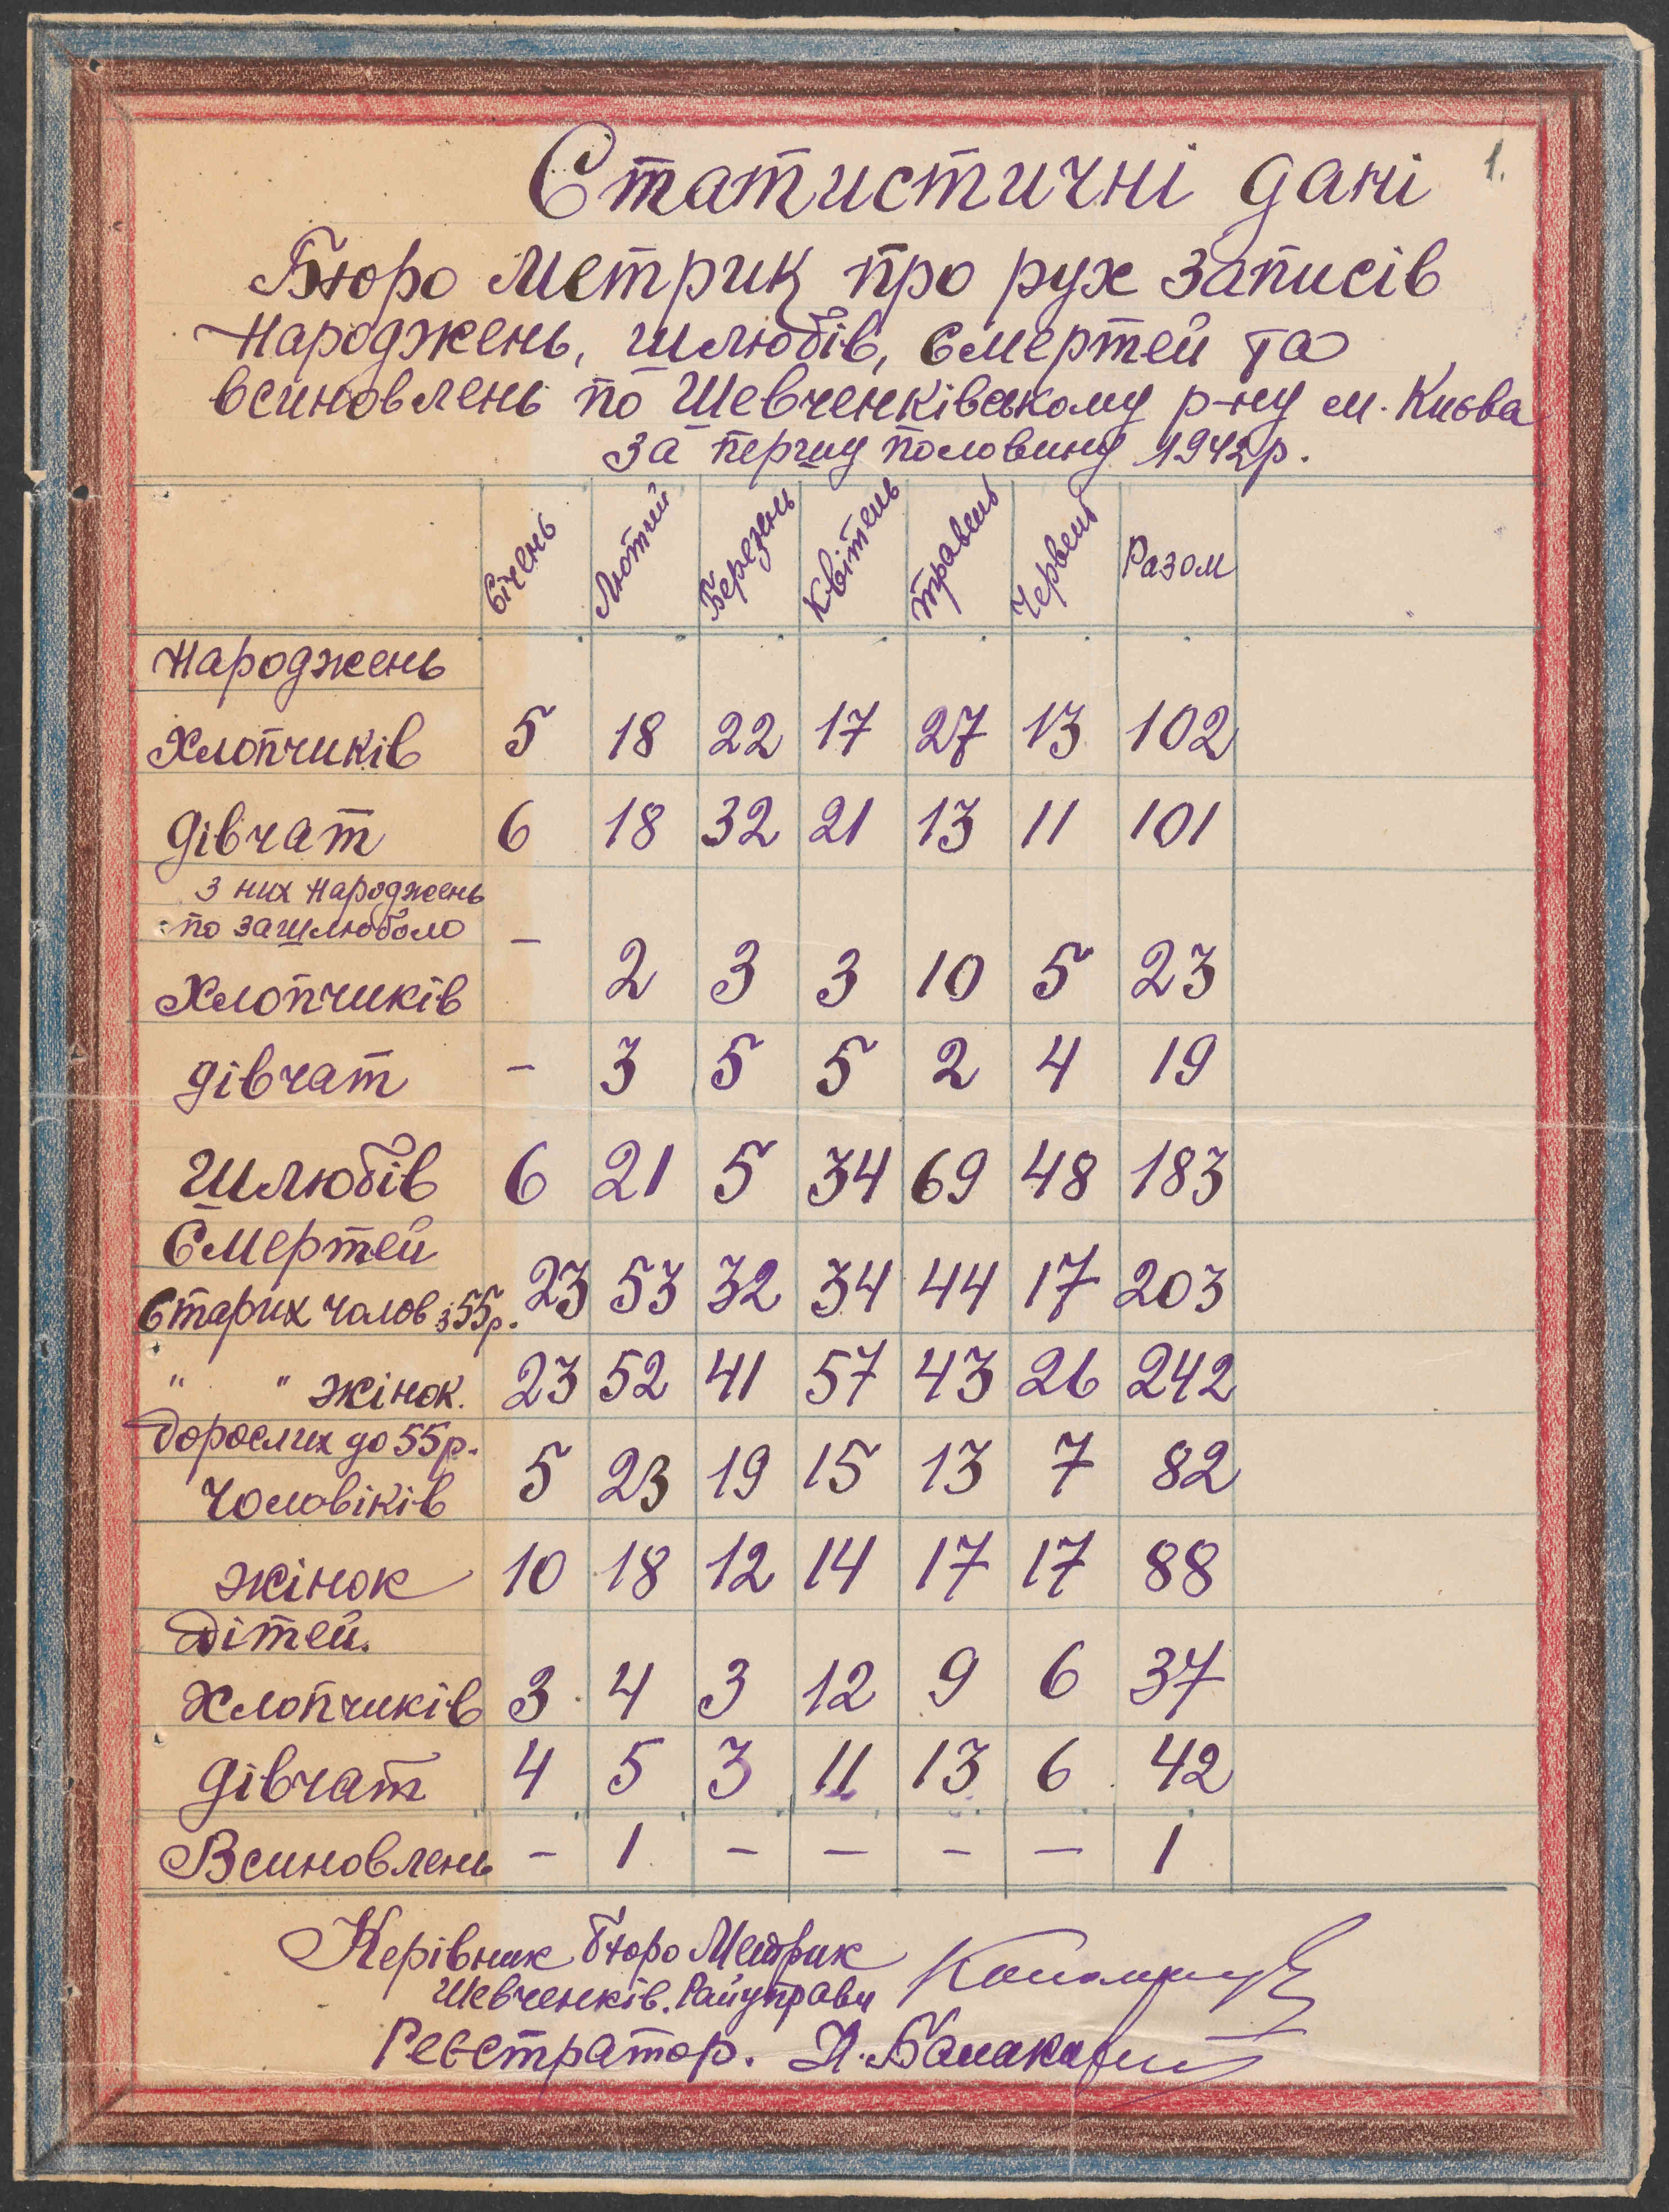 1.
Статистичні дані
Бюро Метрик про рух записів
Народжень, шлюбів, смертей та
всиновлень по Шевченківському р-ну м. Києва
за першу половину 1942р.
Січень Лютий Березень Квітень Травень Червень Разом
Народжень
Хлопчиків 5 18 22 17 27 13 102
дівчат 6 18 32 21 13 11 101
з них народжень
по зашлюбом
Хлопчиків – 2 3 3 10 5 23
дівчат – 3 5 5 2 4 19
Шлюбів 6 21 5 34 69 48 183
Смертей
Старих чолов з 55р. 23 53 32 34 44 17 203
" " жінок. 23 52 41 57 43 26 242
Дорослих до 55р.
чоловіків 5 23 19 15 13 7 82
жінок 10 18 12 14 17 17 88
Дітей.
Хлопчиків 3 4 3 12 9 6 37
дівчат 4 5 3 11 13 6 42
Всиновлень – 1 – – – – 1
Керівник Бюро Метрик
Шевченків. Райуправи
Реєстратор.